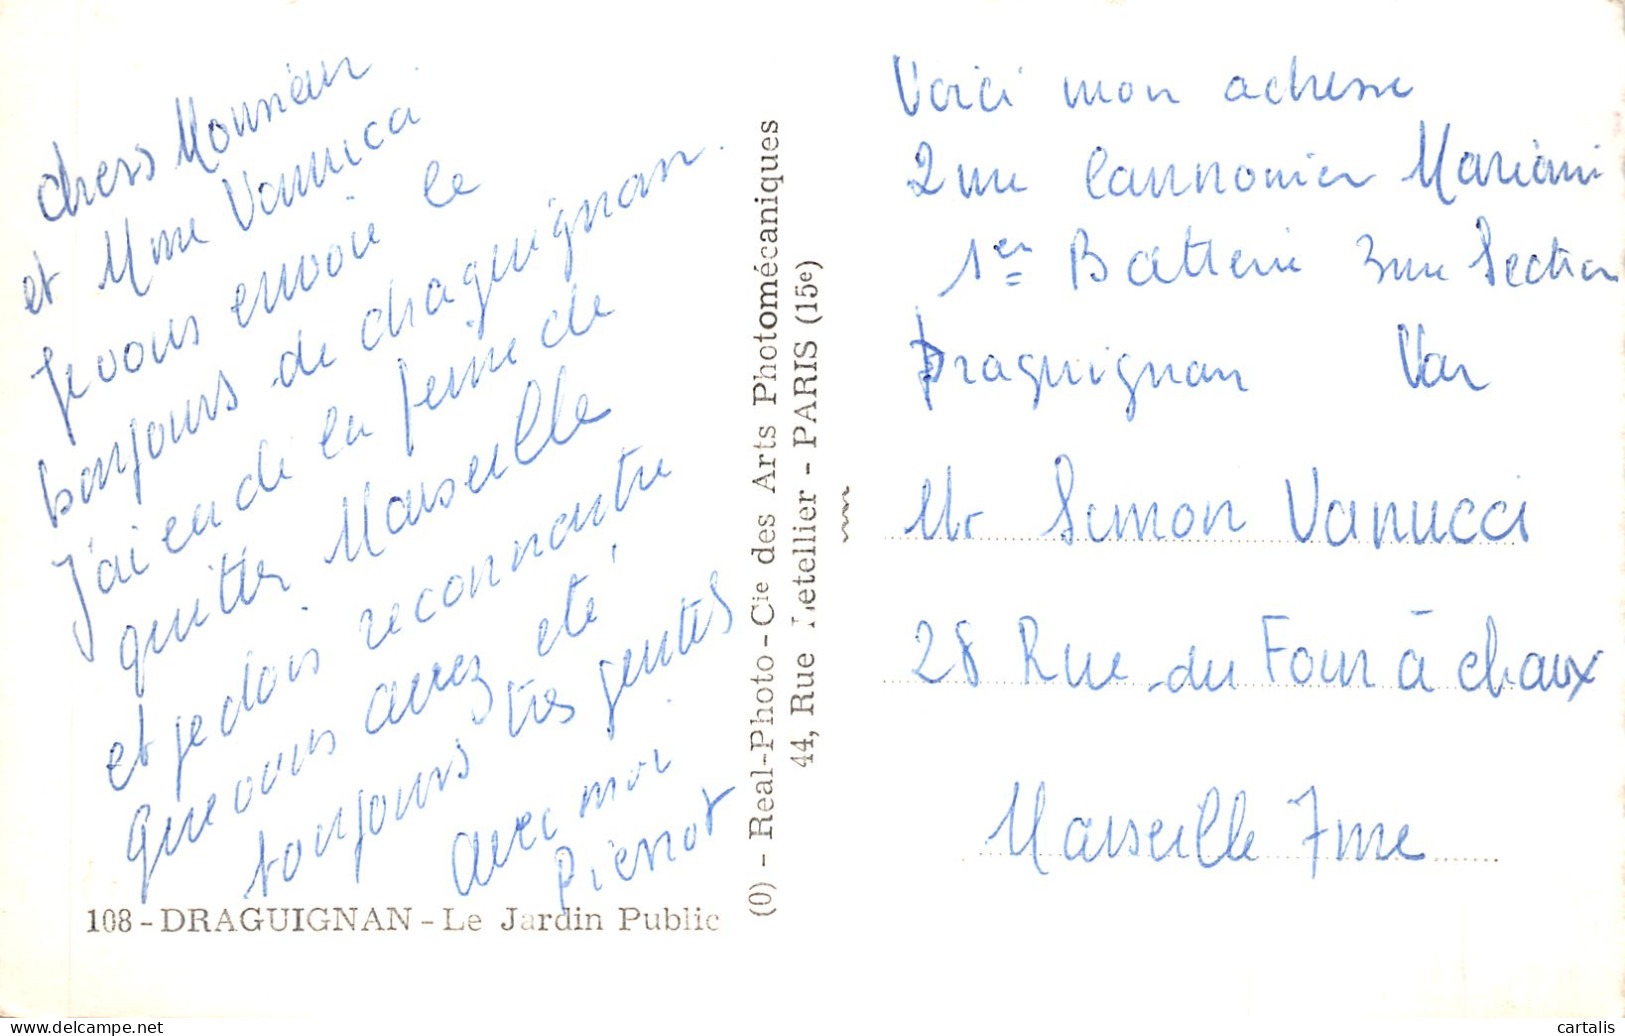 chers Monsieur
et Mme Vanucci
Je vous envoie le
bonjours de draguignan.
J'ai eu de la peine de
quitter Marseille
et je dois reconnaitre
que vous avez eté
toujours tres gentils
avec moi
Pierrot
108 - DRAGUIGNAN - Le Jardin Public
(O) - Real-Photo - Cie des Arts Photomécaniques
44, Rue Letellier - PARIS (15e)
Voici mon adresse
2me Cannonier Mariani
1er Batterie 3me Section
Draguignan Var
Mr Simon Vanucci
28 Rue du Four à chaux
Marseille 7me
cartalis